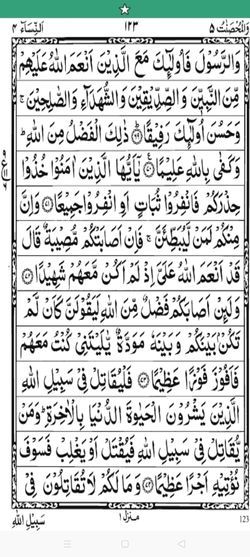 وَالْمُحْصَنٰتُ ۵ ۱۲۳ اَلنِّسَآء ۴
وَالرَّسُوْلَ فَاُولٰٓئِكَ مَعَ الَّذِيْنَ اَنْعَمَ اللّٰهُ عَلَيْهِمْ
مِّنَ النَّبِيّٖنَ وَالصِّدِّيْقِيْنَ وَالشُّهَدَآءِ وَالصّٰلِحِيْنَ ۚ
وَحَسُنَ اُولٰٓئِكَ رَفِيْقًا ﴿۶۹﴾ ذٰلِكَ الْفَضْلُ مِنَ اللّٰهِ ؕ
وَكَفٰى بِاللّٰهِ عَلِيْمًا ﴿۷۰﴾ يٰۤاَيُّهَا الَّذِيْنَ اٰمَنُوْا خُذُوْا
حِذْرَكُمْ فَانْفِرُوْا ثُبَاتٍ اَوِ انْفِرُوْا جَمِيْعًا ﴿۷۱﴾ وَاِنَّ
مِنْكُمْ لَمَنْ لَّيُبَطِّئَنَّ ۚ فَاِنْ اَصَابَتْكُمْ مُّصِيْبَةٌ قَالَ
قَدْ اَنْعَمَ اللّٰهُ عَلَىَّ اِذْ لَمْ اَكُنْ مَّعَهُمْ شَهِيْدًا ﴿۷۲﴾
وَلَئِنْ اَصَابَكُمْ فَضْلٌ مِّنَ اللّٰهِ لَيَقُوْلَنَّ كَاَنْ لَّمْ
تَكُنْۢ بَيْنَكُمْ وَبَيْنَهٗ مَوَدَّةٌ يّٰلَيْتَنِىْ كُنْتُ مَعَهُمْ
فَاَفُوْزَ فَوْزًا عَظِيْمًا ﴿۷۳﴾ فَلْيُقَاتِلْ فِىْ سَبِيْلِ اللّٰهِ
الَّذِيْنَ يَشْرُوْنَ الْحَيٰوةَ الدُّنْيَا بِالْاٰخِرَةِ ؕ وَمَنْ
يُّقَاتِلْ فِىْ سَبِيْلِ اللّٰهِ فَيُقْتَلْ اَوْ يَغْلِبْ فَسَوْفَ
نُؤْتِيْهِ اَجْرًا عَظِيْمًا ﴿۷۴﴾ وَمَا لَكُمْ لَا تُقَاتِلُوْنَ فِىْ
سَبِيْلِ اللّٰهِ منزل ۱ 123